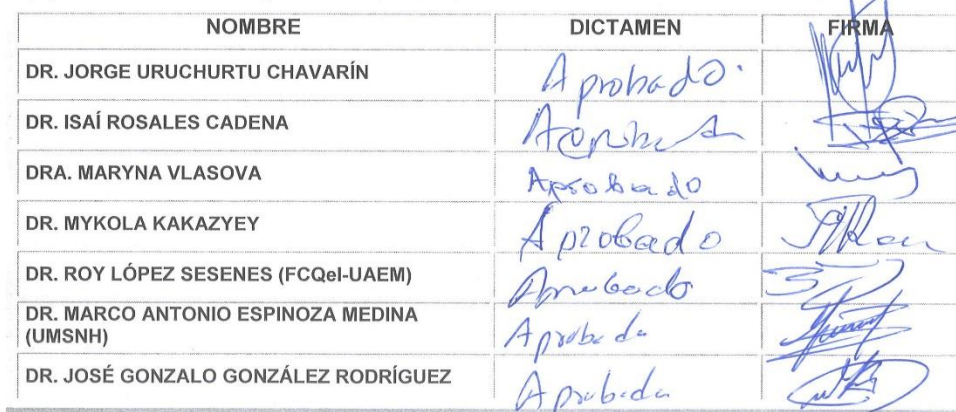 NOMBRE DICTAMEN FIRMA
DR. JORGE URUCHURTU CHAVARÍN Aprobado.
DR. ISAÍ ROSALES CADENA
DRA. MARYNA VLASOVA Aprobado
DR. MYKOLA KAKAZYEY Aprobado
DR. ROY LÓPEZ SESENES (FCQeI-UAEM) Aprobado
DR. MARCO ANTONIO ESPINOZA MEDINA
(UMSNH) Aprobado
DR. JOSÉ GONZALO GONZÁLEZ RODRÍGUEZ Aprobado